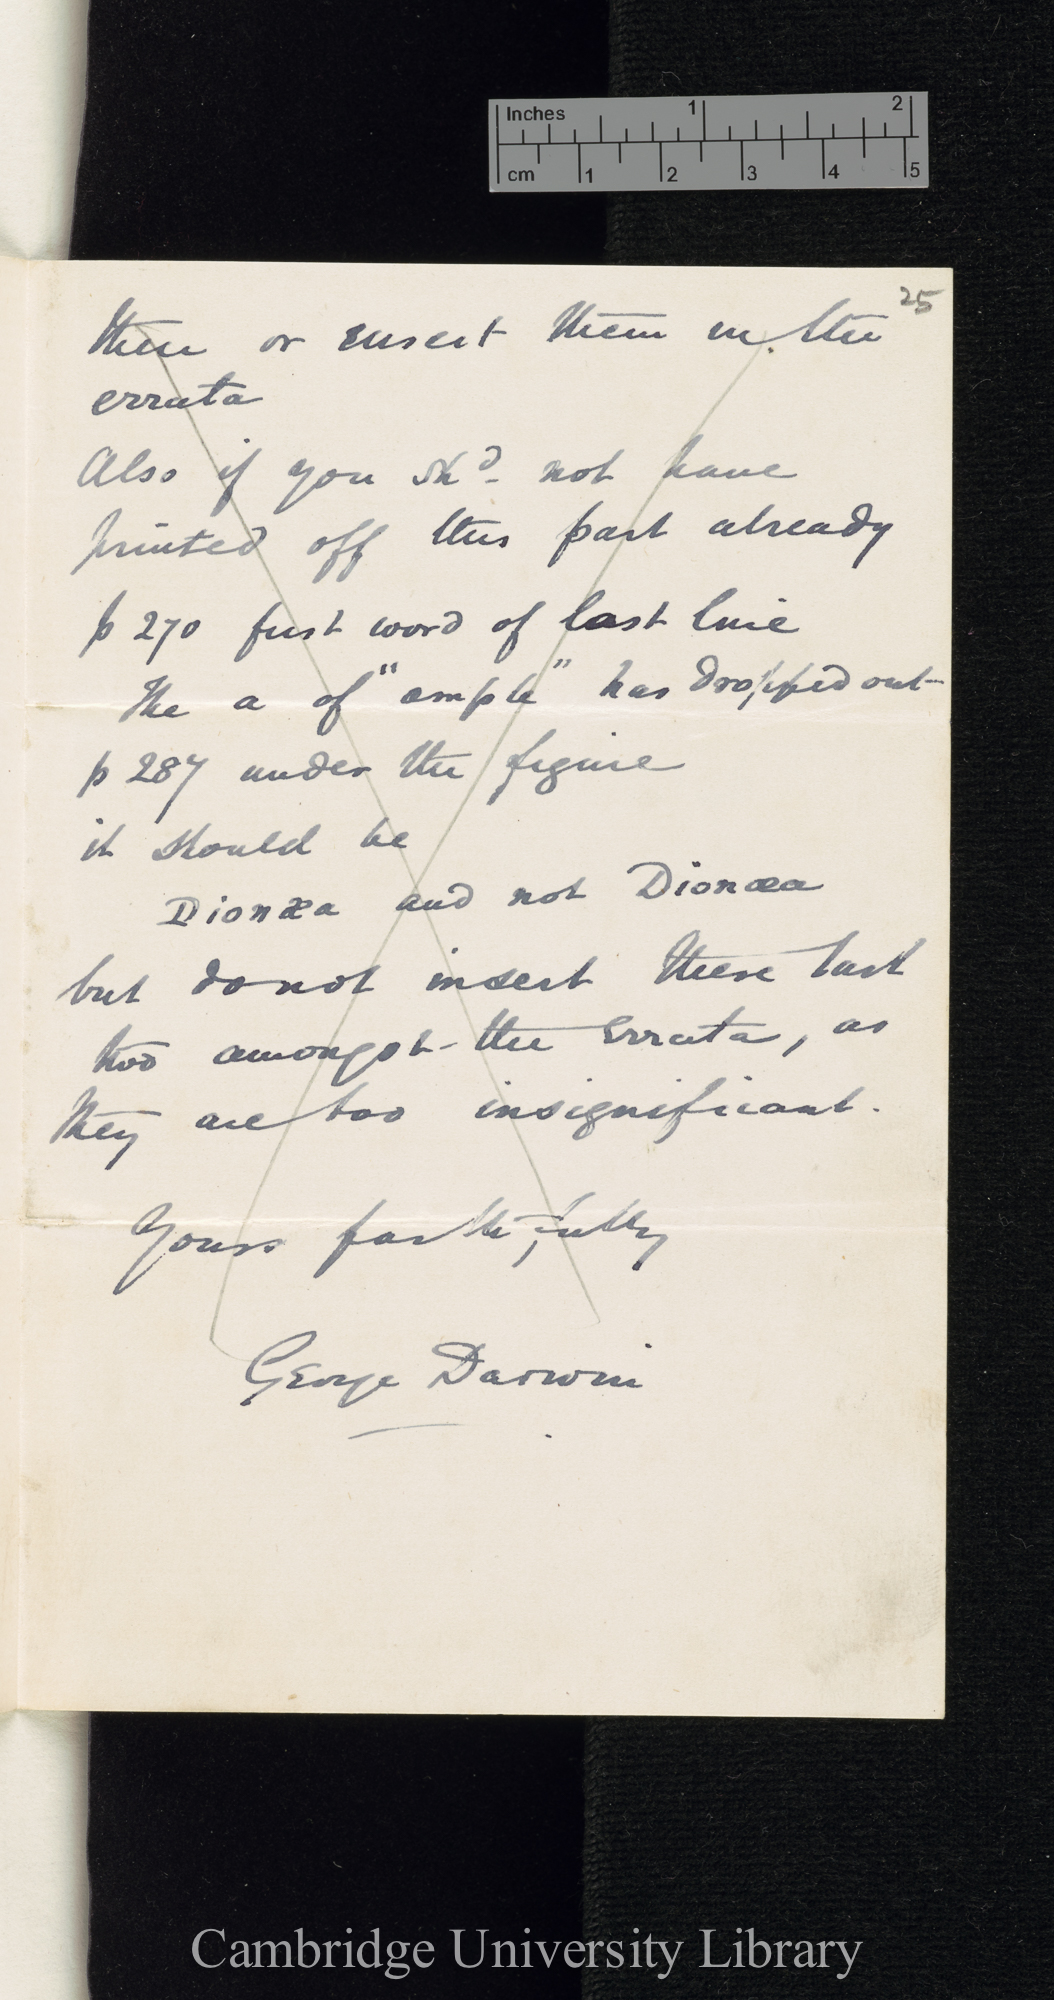 Inches 1 2
cm 1 2 3 4 5
25
them or insert them in the
errata
Also if you shd. not have
printed off this part already
p 270 first word of last line
The a of "ample" has dropped out
p 287 under the figure
it should be
Dionæa and not Dionœa
but do not insert these last
two amongst the Errata, as
they are too insignificant.
Yours faithfully
George Darwin
Cambridge University Library